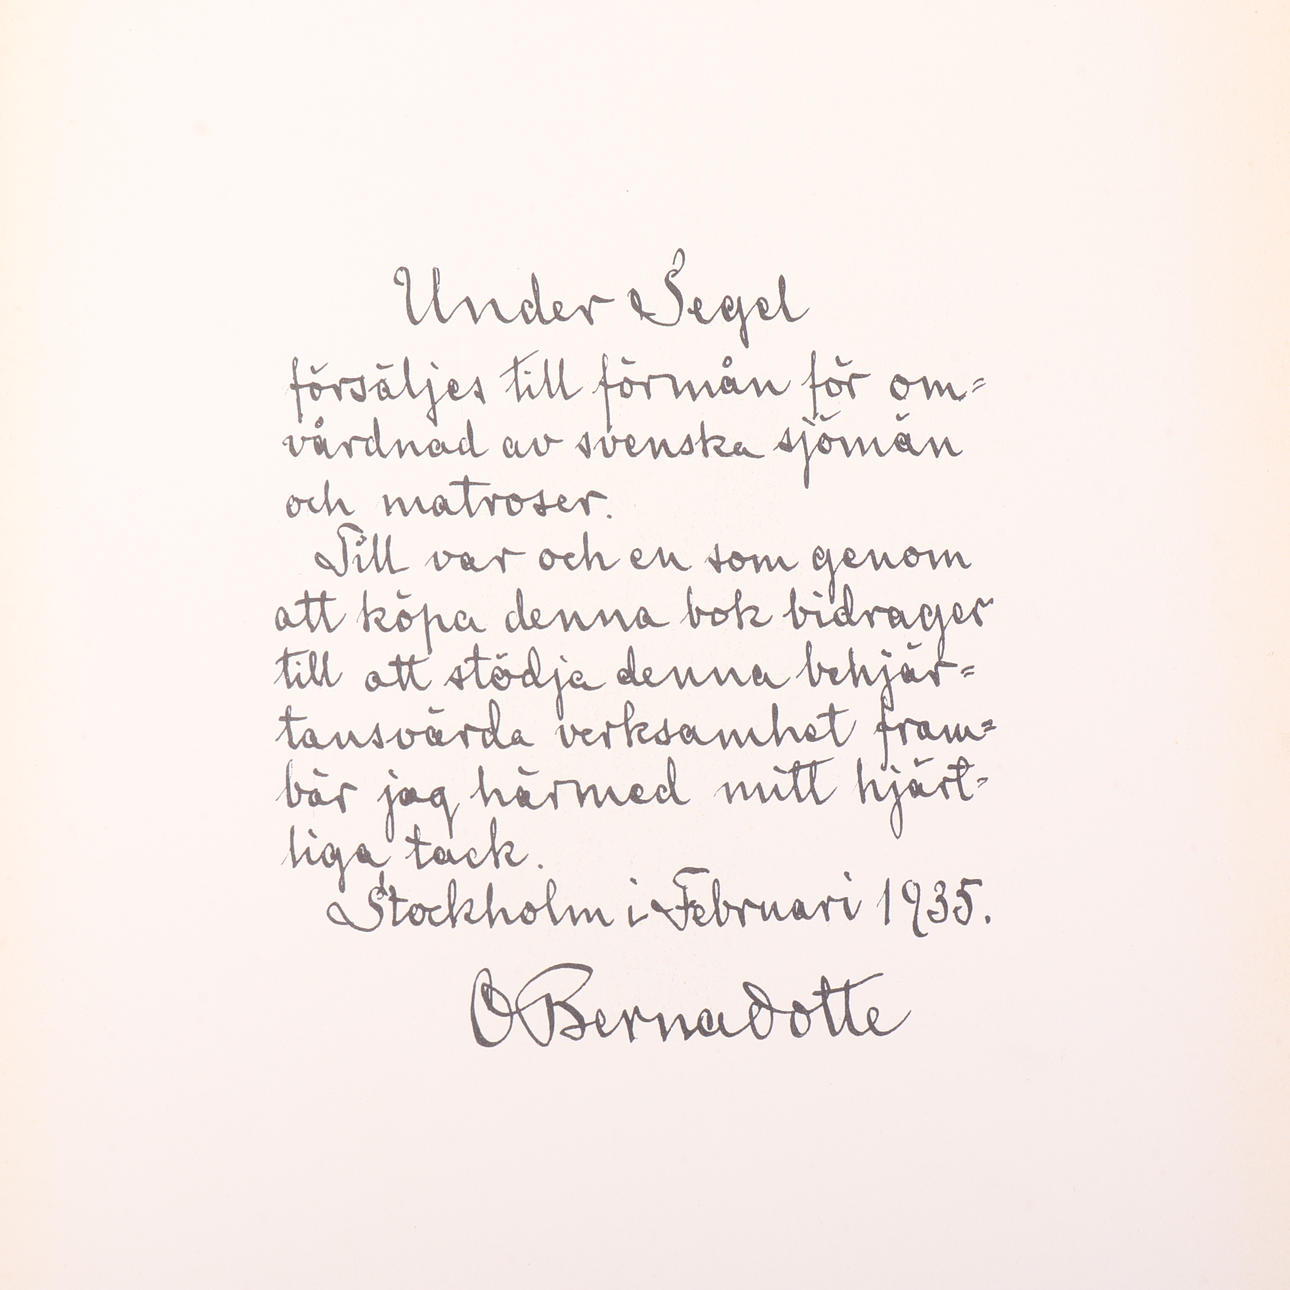 Under Segel
försäljes till förmån för om=
vårdnad av svenska sjömän
och matroser.
Till var och en som genom
att köpa denna bok bidrager
till att stödja denna behjär=
tansvärda verksamhet fram=
bär jag härmed mitt hjärt=
liga tack.
Stockholm i Februari 1935.
O Bernadotte